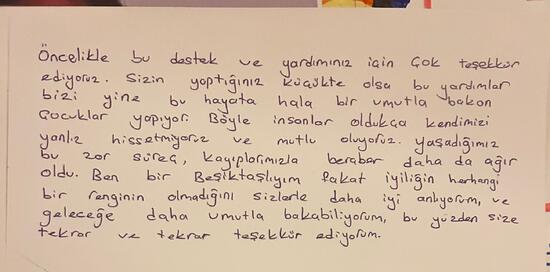 Öncelikle bu destek ve yardımınız için çok teşekkür
ediyoruz. Sizin yaptığınız küçükte olsa bu yardımlar
bizi yine bu hayata hala bir umutla bakan
çocuklar yapıyor. Böyle insanlar oldukça kendimizi
yanlız hissetmiyoruz ve mutlu oluyoruz. Yaşadığımız
bu zor süreç, kayıplarımızla beraber daha da ağır
oldu. Ben bir Beşiktaşlıyım fakat iyiliğin herhangi
bir renginin olmadığını sizlerle daha iyi anlıyorum, ve
geleceğe daha umutla bakabiliyorum, bu yüzden size
tekrar ve tekrar teşekkür ediyorum.